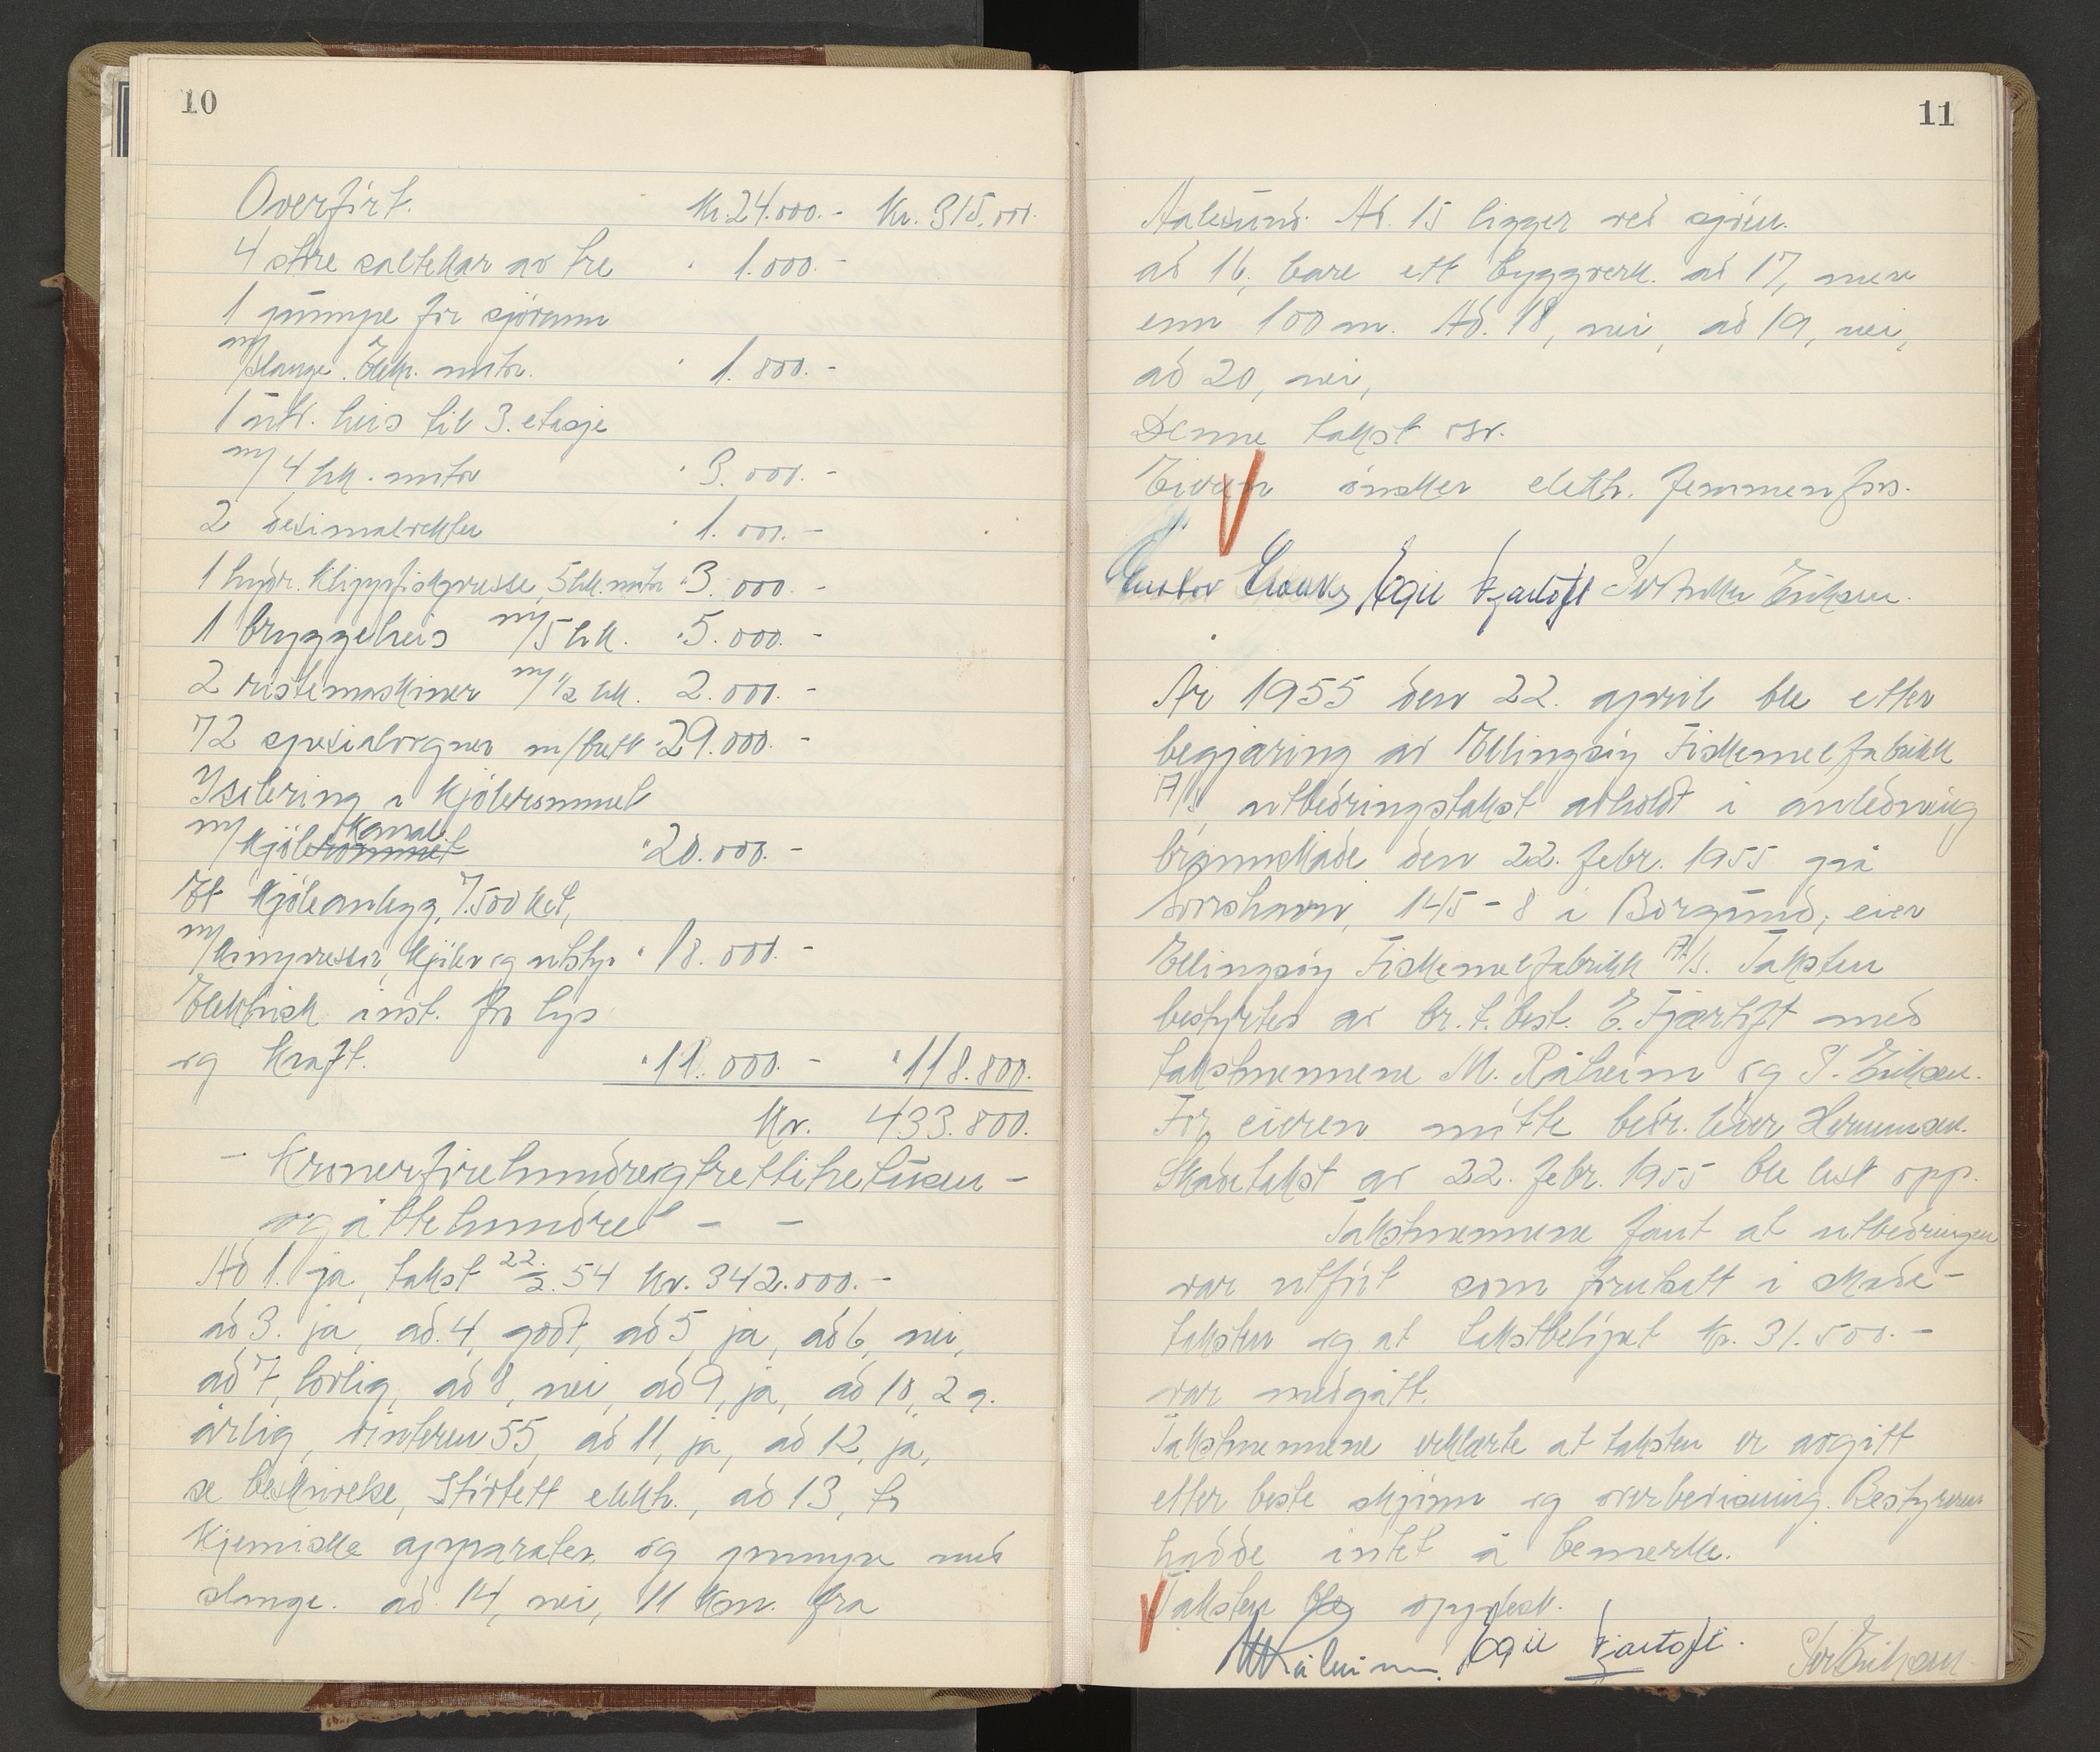 10
Overført. Kr. 24.000.- Kr. 315.000.
4 store saltekar av tre " 1.000.-
1 pumpe for sjøvann
m/slange. Elektr. motor. " 1.800.-
1 utv. heis til 3. etasje
m/ 4 hk. motor " 3.000.-
2 desimalvekter " 1.000.-
1 hydr. klippfiskpresse, 5 hk. motor " 3.000.-
1 bryggeheis m/5 hk. " 5.000.-
2 ristemaskiner m/ ½ hk. 2.000.-
72 spesialvogner m/brett " 29.000.-
Isolering i kjølerommet
m/ kjølerommet kanal " 20.000.-
Et kjøleanlegg, 7.500 kcl,
m/kompressor, kjøler og utstyr " 18.000.-
Elektrisk inst. for lys
og kraft. " 11.000.- " 118.800.
Kr. 433.800.
- Kronerfirehundreogtrettitretusen -
ogåttehundre - -
Ad 1. ja, takst 22/2.54 kr. 342.000.-
ad 3. ja, ad. 4, godt, ad 5, ja, ad 6, nei,
ad 7, lovlig, ad 8, nei, ad 9, ja, ad 10, 2 g.
årlig, vinteren 55, ad 11, ja, ad 12, ja,
se beskrivelse, støvtett elektr., ad 13, to
kjemiske apparater og pumpe med
slange. ad 14, nei, 11 km. fra
11
Aalesund. Ad. 15 ligger ved sjøen.
ad 16, bare ett byggverk. ad 17, mere
enn 100 m. Ad. 18, nei, ad 19, nei,
ad 20, nei,
Denne takst osv.
Eieren ønsker elektr. femmenfors.
Egil Fjærtoft Eriksen.
År 1955 den 22. april ble etter
begjæring av Ellingsøy Fiskemelfabrikk
A/S, utbedringstakst avholdt i anledning
brannskade den 22. febr. 1955 på
145-8 i Borgund; eier
Ellingsøy Fiskemelfabrikk A/S. Taksten
bestyrtes av br.t.best. E. Fjærtoft med
takstmennene M. Råheim og S. Eriksen.
For eieren møtte bedr. leder Hermansen.
Skadetakst av 22. febr. 1955 ble lest opp.
Takstmennene fant at utbedringen
var utført som forutsatt i skade-
taksten og at takstbeløpet kr. 31.500.-
var medgått.
Takstmennene erklærte at taksten er avgitt
etter beste skjønn og overbevisning. Bestyreren
hadde intet å bemerke.
Taksten ble opplest.
M Råheim. Egil Fjærtoft. Eriksen